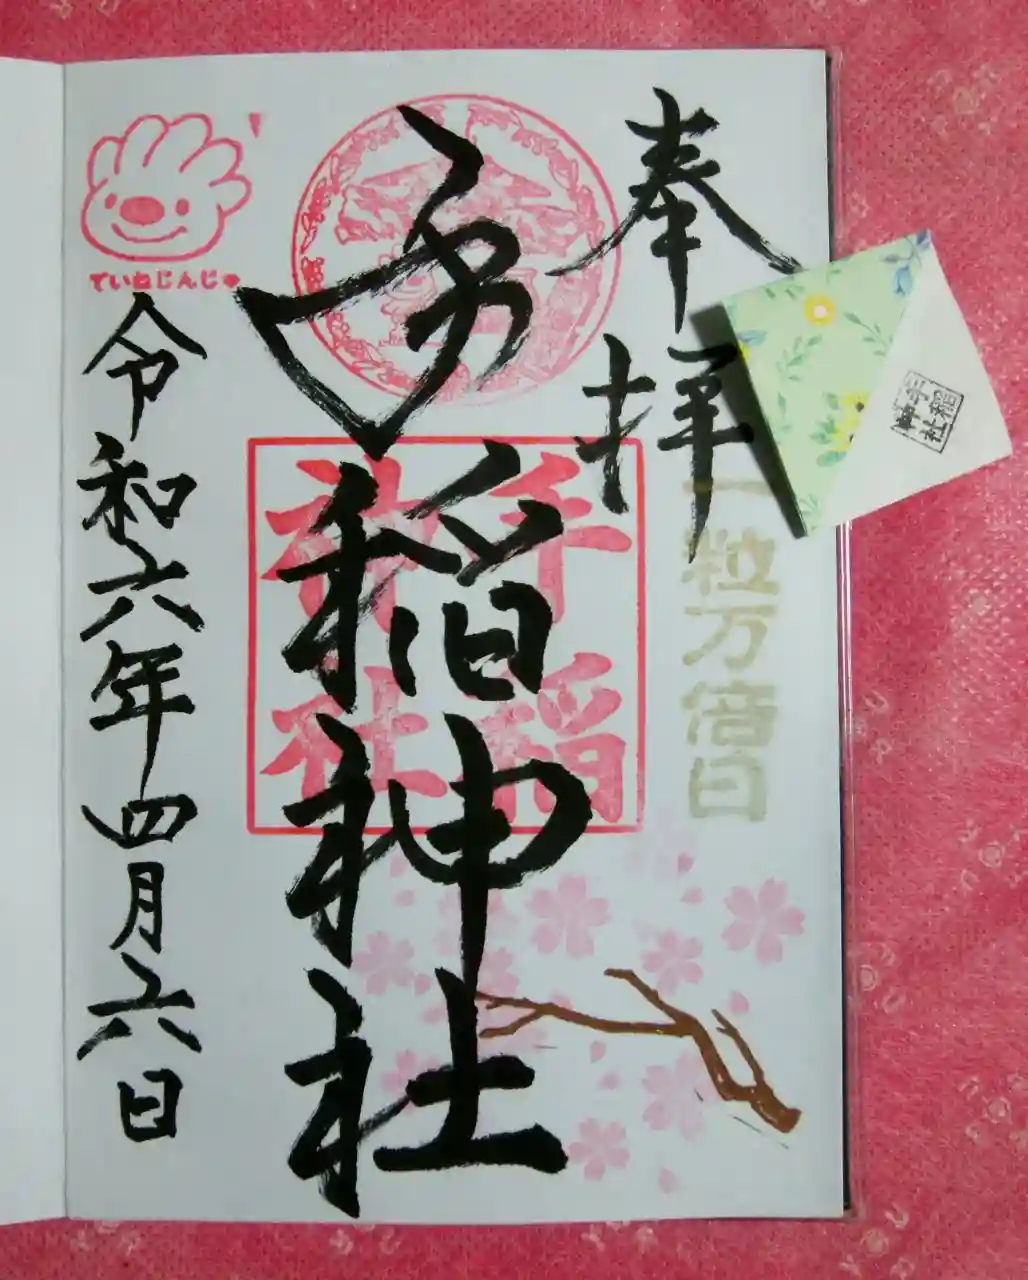 奉拝
一粒万倍日
手稲神社
手稲神社
ていねじんじゃ
令和六年四月六日
手稲神社